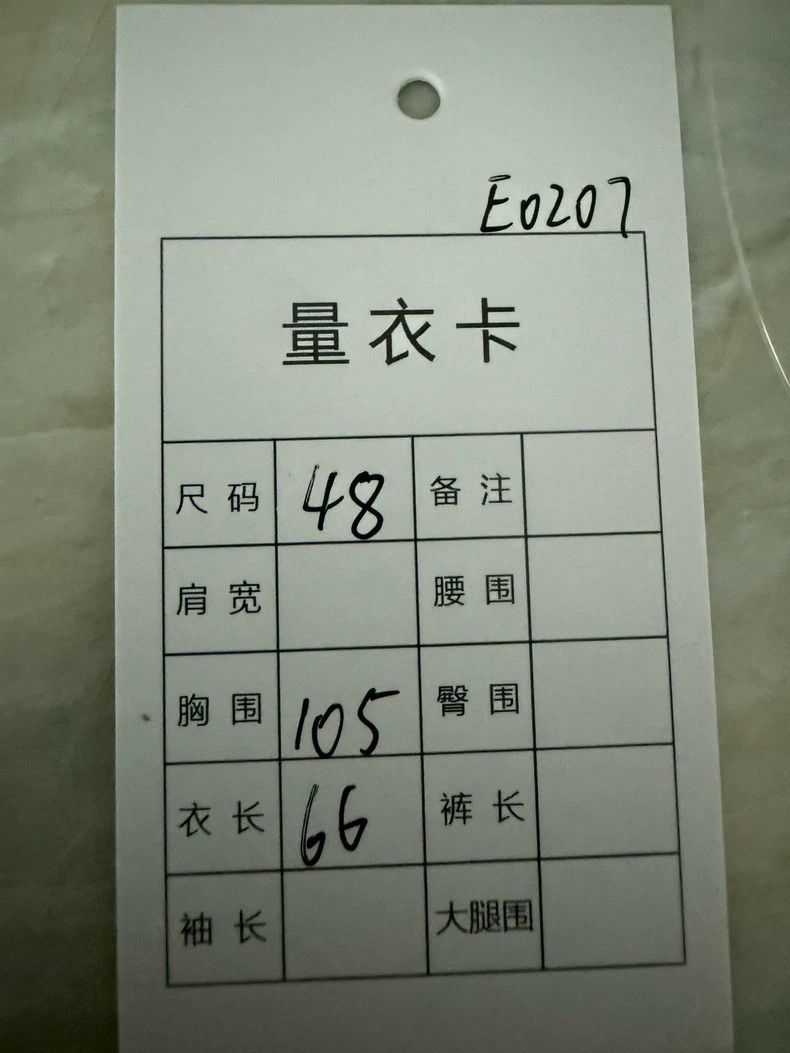 E0207
量衣卡
尺码 48 备注
肩宽 腰围
胸围 105 臀围
衣长 66 裤长
袖长 大腿围